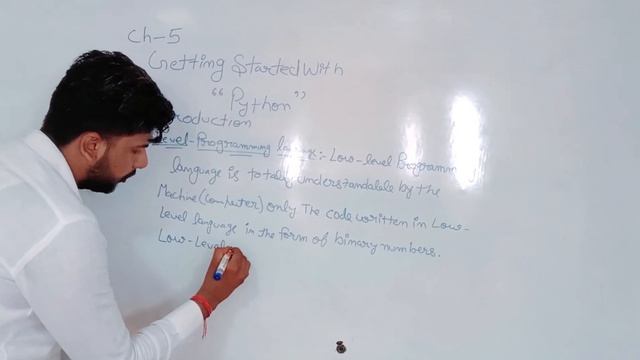 Ch-5
Getting Started With
"Python"
roduction
Level-Programming language:- Low-level Programm
language is totally understandable by the
Machine(computer) only The code written in Low-
Level language in the form of binary numbers.
Low-Level